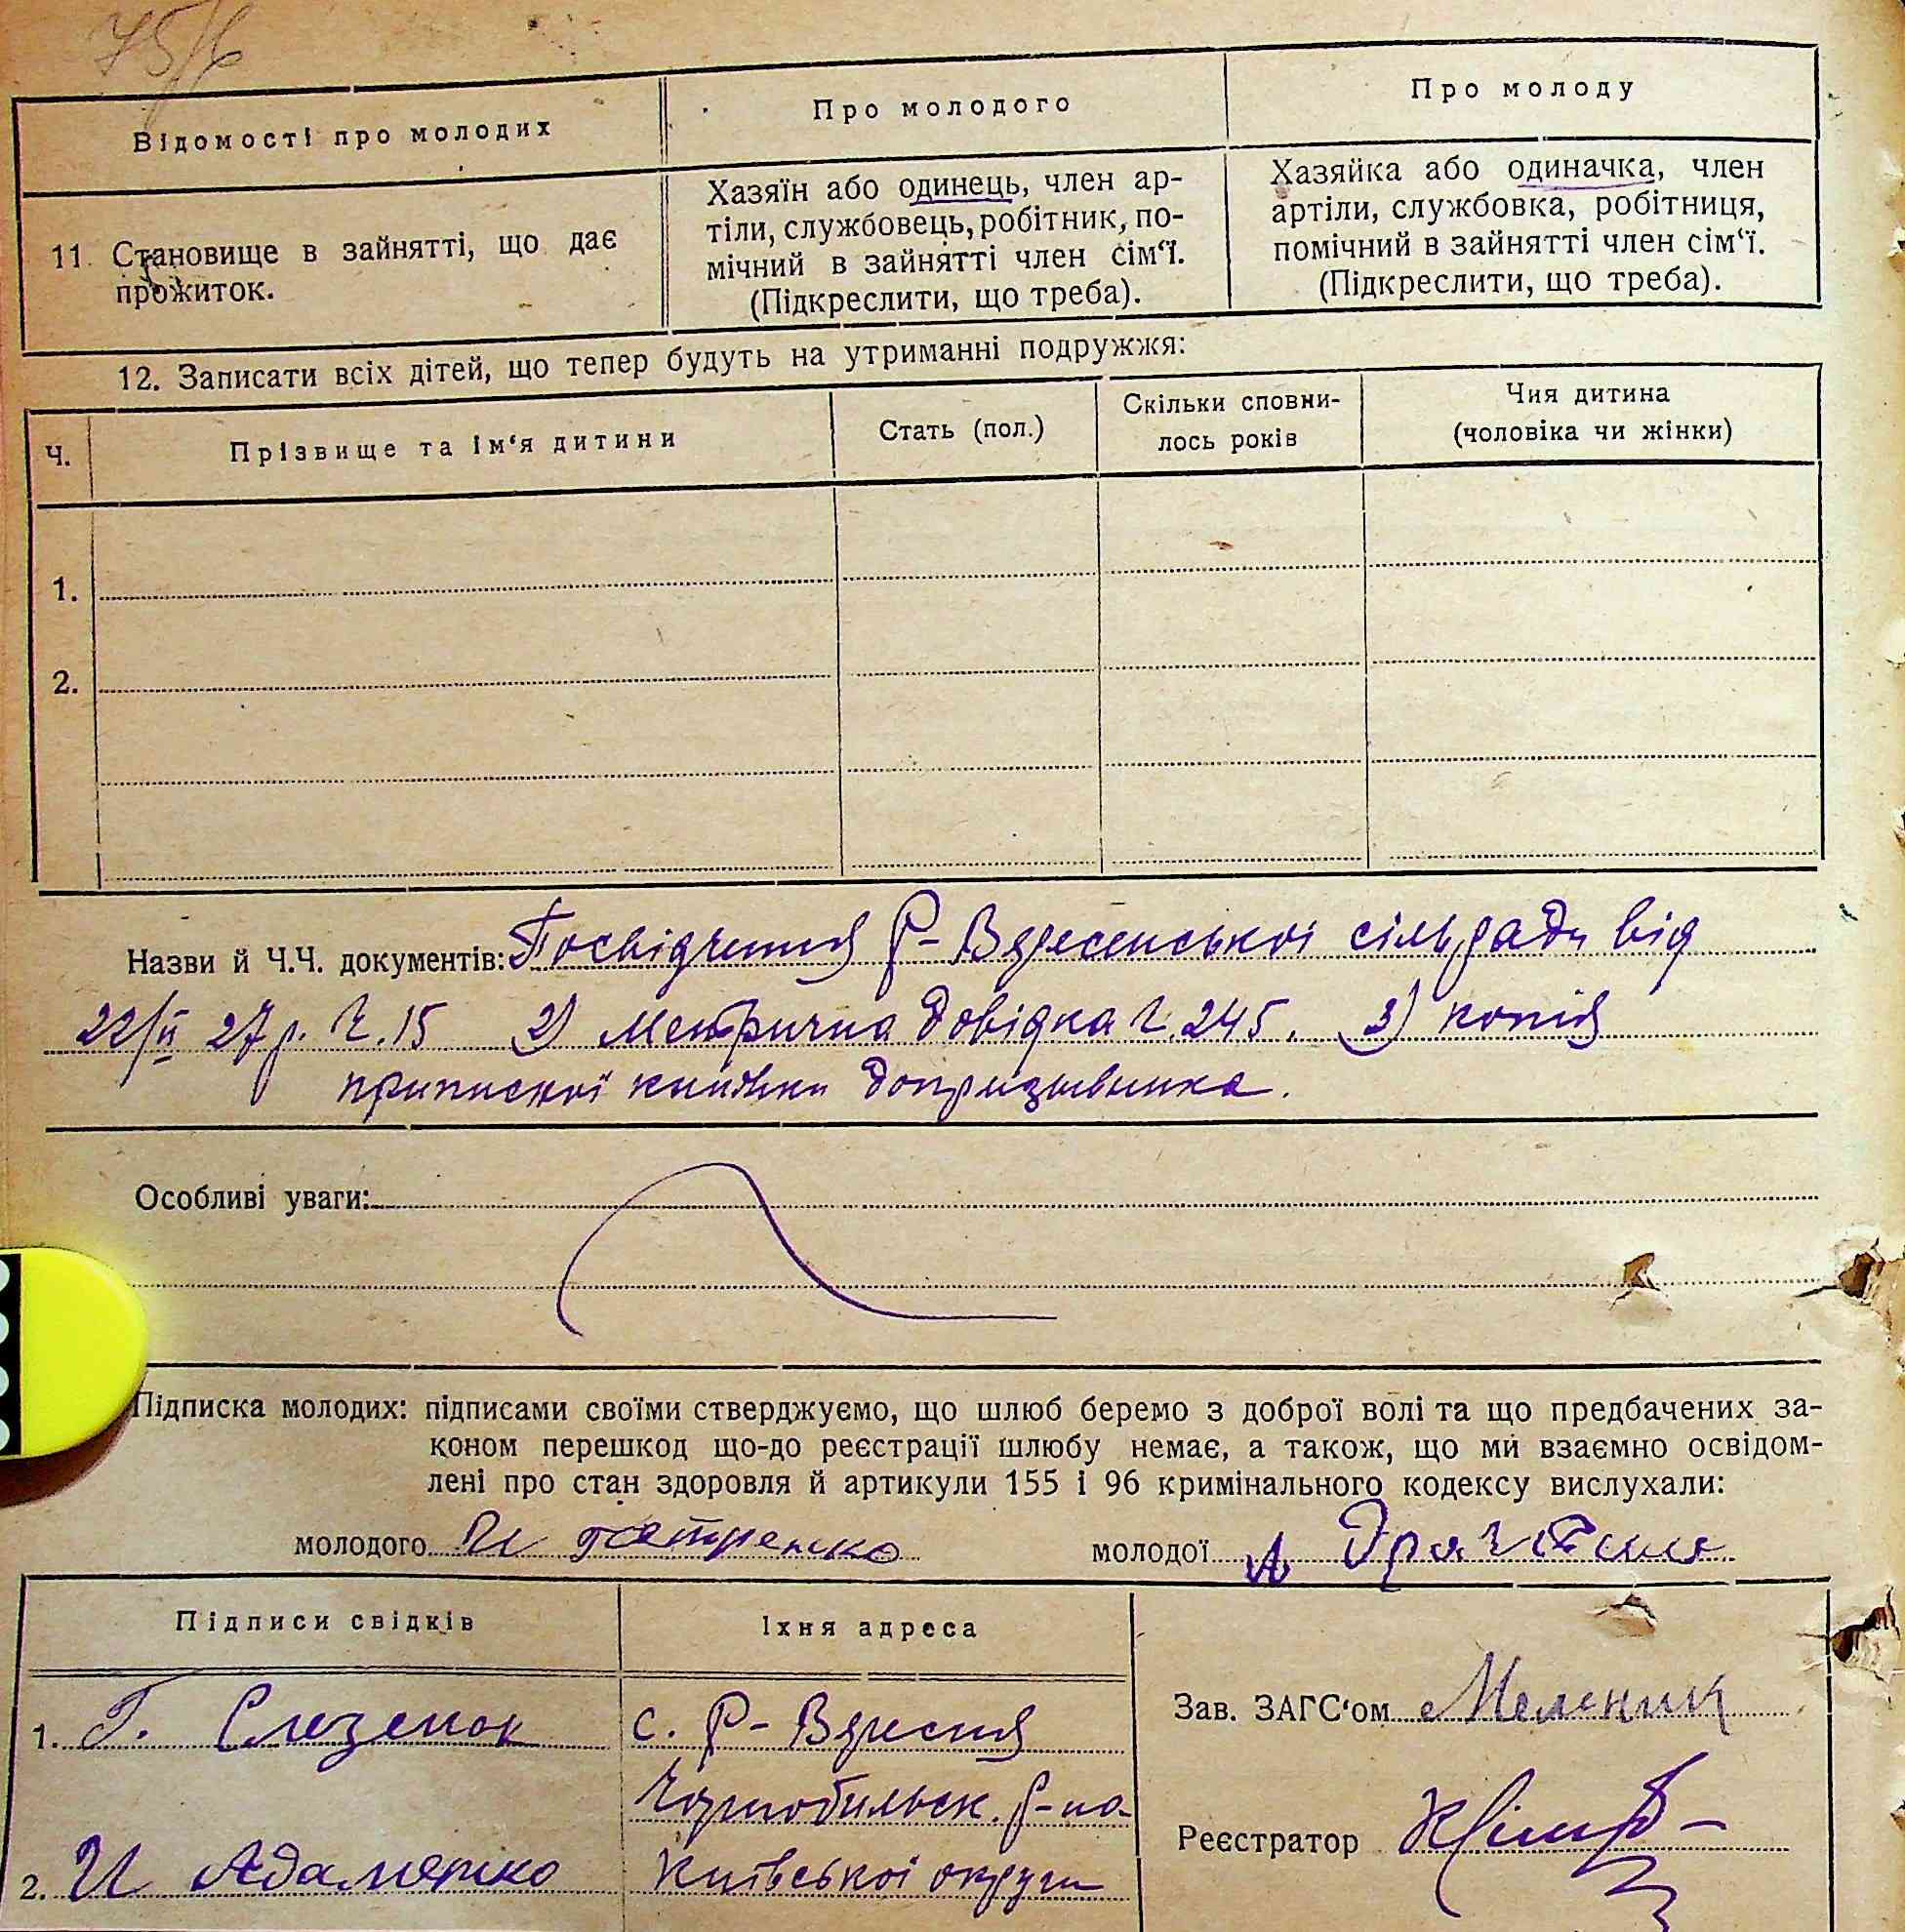 Відомості про молодих
Про молодого
Про молоду
11. Становище в зайнятті, що дає
прожиток.
Хазяїн або одинець, член ар-
тіли, службовець, робітник, по-
мічний в зайнятті член сім‘ї.
(Підкреслити, що треба).
Хазяйка або одиначка, член
артіли, службовка, робітниця,
помічний в зайнятті член сім‘ї.
(Підкреслити, що треба).
12. Записати всіх дітей, що тепер будуть на утриманні подружжя:
Ч.
Прізвище та ім‘я дитини
Стать (пол.)
Скільки сповни-
лось років
Чия дитина
(чоловіка чи жінки)
1.
2.
Назви й Ч.Ч. документів: Посвідчення Р-Вересенської сільради від
22/II 27 р. Ч. 15 2) Метрична довідка Ч. 245. 3) копія
приписної книжки допризывника.
Особливі уваги:
Підписка молодих: підписами своїми стверджуємо, що шлюб беремо з доброї волі та що предбачених за-
коном перешкод що-до реєстрації шлюбу немає, а також, що ми взаємно освідом-
лені про стан здоровля й артикули 155 і 96 кримінального кодексу вислухали:
молодого Петренко
молодої
Підписи свідків
Їхня адреса
1. Г. Слезенок
с. Р-Вересня
Чорнобильск. р-на
2. И Адаменко
Київської округи
Зав. ЗАГС‘ом Мельник
Реєстратор